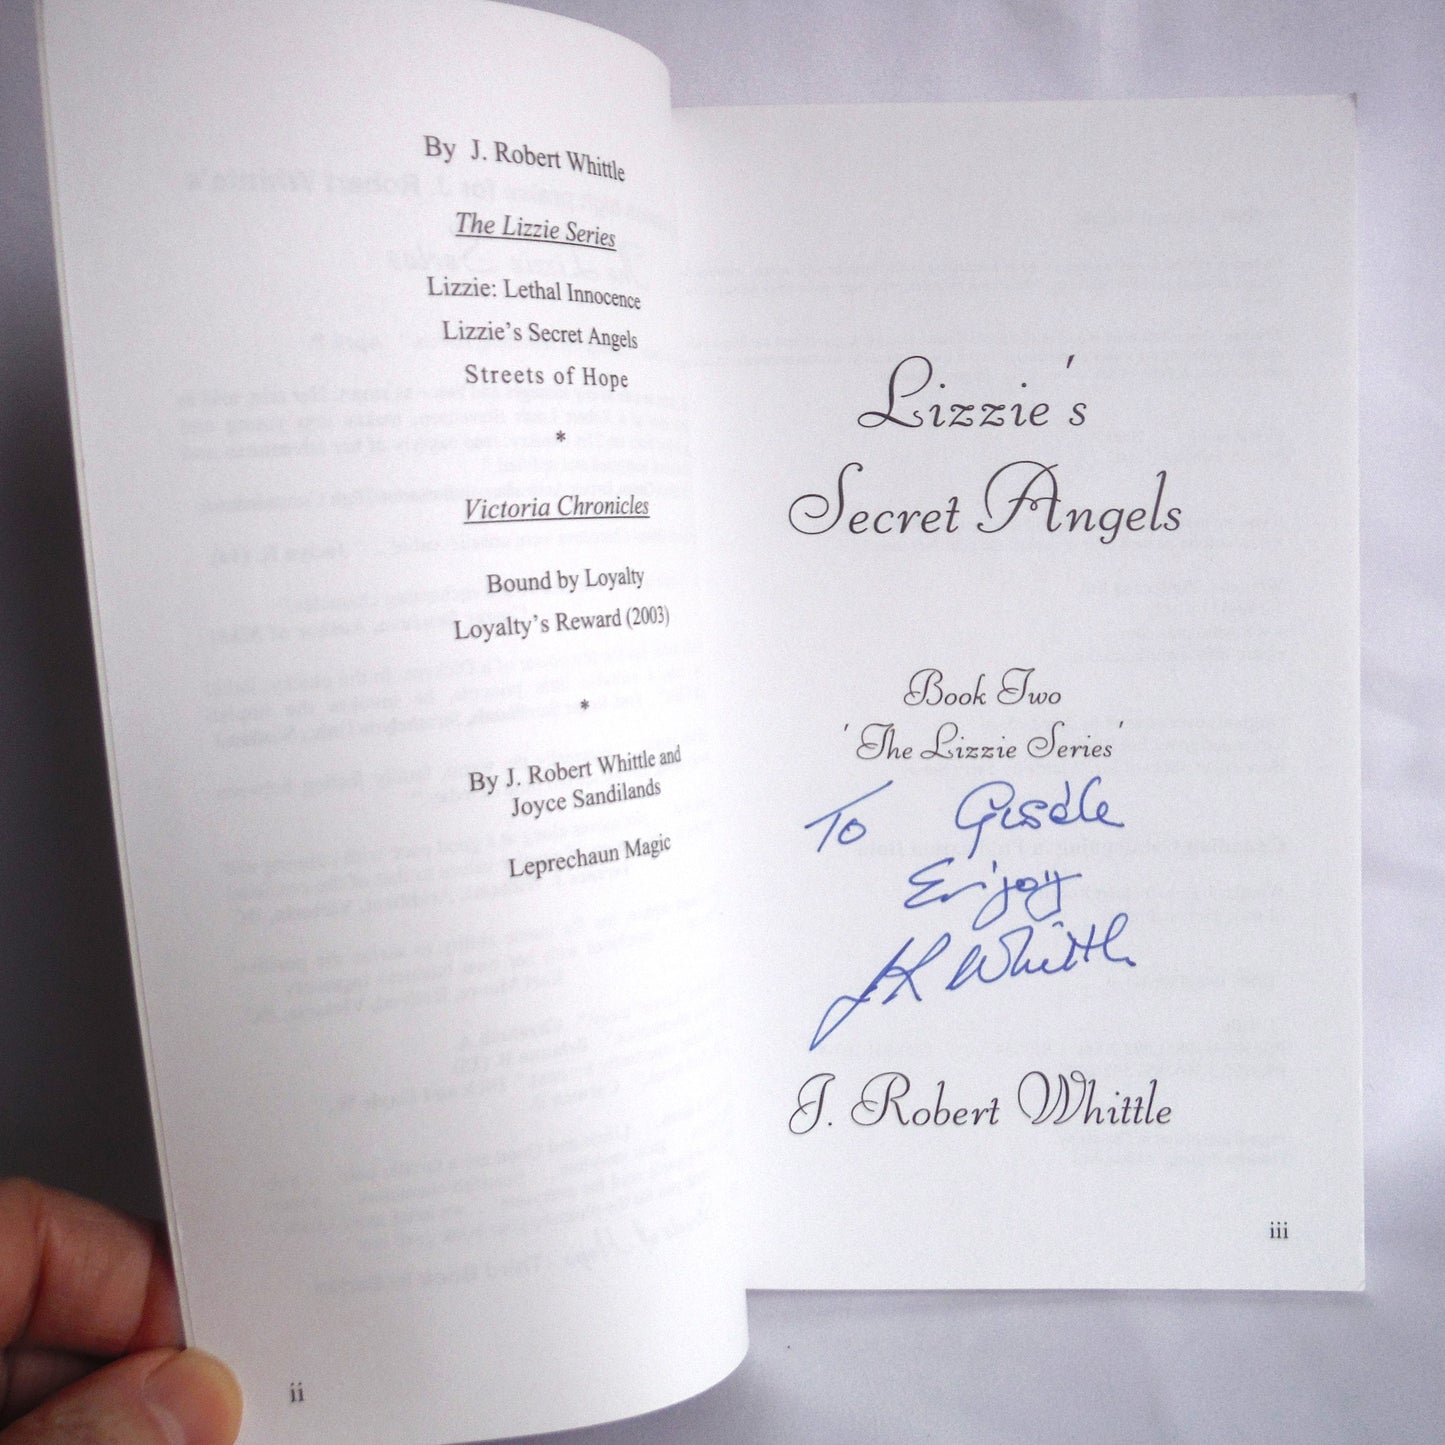 By J. Robert Whittle
The Lizzie Series
Lizzie: Lethal Innocence
Lizzie's Secret Angels
Streets of Hope
*
Victoria Chronicles
Bound by Loyalty
Loyalty's Reward (2003)
*
By J. Robert Whittle and
Joyce Sandilands
Leprechaun Magic
ii
Lizzie's
Secret Angels
Book Two
'The Lizzie Series'
To
Enjoy
Whittle
J. Robert Whittle
iii